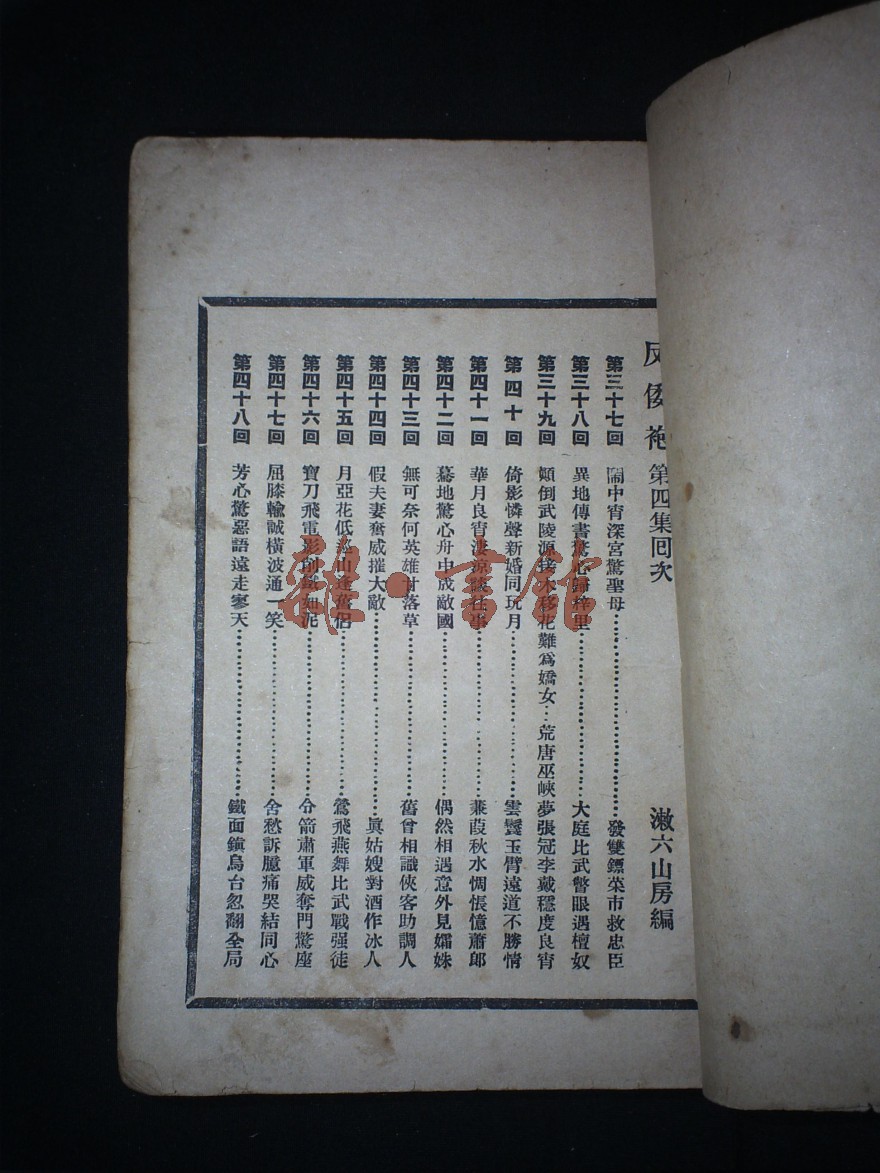 反倭袍 第四集回次 漱六山房編
第三十七回 鬧中宵深宮驚聖母………發雙鏢菜市救忠臣
第三十八回 異地傳書驚心歸梓里………大庭比武瞥眼遇檀奴
第三十九回 顛倒武陵源接木移花難爲嬌女…荒唐巫峽夢張冠李戴穩度良宵
第四十回 倚影憐聲新婚同玩月………雲鬟玉臂遠道不勝情
第四十一回 華月良宵淒涼談往事………蒹葭秋水惆悵憶蕭郎
第四十二回 驀地驚心舟中成敵國………偶然相遇意外見孀姝
第四十三回 無可奈何英雄甘落草………舊曾相識俠客助調人
第四十四回 假夫妻奮威摧大敵………眞姑嫂對酒作冰人
第四十五回 月亞花低巡山逢舊侶………鶯飛燕舞比武戰强徒
第四十六回 寶刀飛電影削鐵如泥………分箭肅軍威奪門驚座
第四十七回 屈膝輸誠橫波通一笑………含愁訴臆痛哭結同心
第四十八回 芳心驚惡語遠走寥天………鐵面鎭烏台忽翻全局
雜·書館